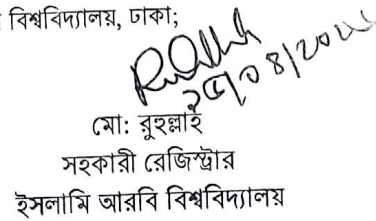 বিশ্ববিদ্যালয়, ঢাকা;
মো: রুহুল্লাহ
সহকারী রেজিস্ট্রার
ইসলামি আরবি বিশ্ববিদ্যালয়